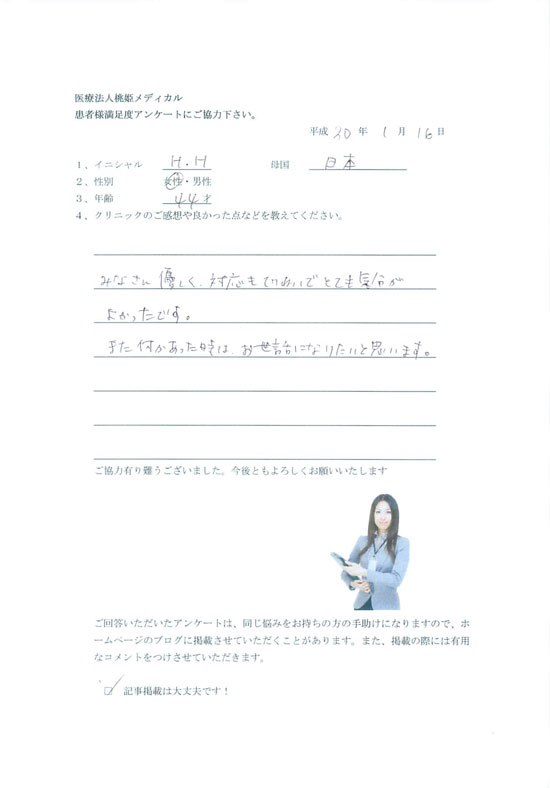 医療法人桃姫メディカル
患者様満足度アンケートにご協力下さい。
平成 30 年 1 月 16 日
1、イニシャル H.H 母国 日本
2、性別 女性・男性
3、年齢 44才
4、クリニックのご感想や良かった点などを教えてください。
みなさん優しく、対応もていねいでとても気分が
よかったです。
また何かあった時は、お世話になりたいと思います。
ご協力有り難うございました。今後ともよろしくお願いいたします
ご回答いただいたアンケートは、同じ悩みをお持ちの方の手助けになりますので、ホ
ームページのブログに掲載させていただくことがあります。また、掲載の際には有用
なコメントをつけさせていただきます。
☑ 記事掲載は大丈夫です！